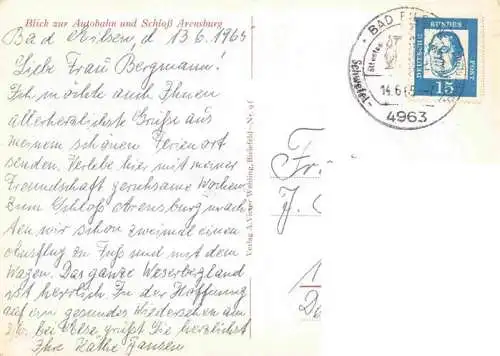 Blick zur Autobahn und Schloß Arensburg
Bad Eilsen, d 13.6.1965
Liebe Frau Bergmann!
Ich möchte auch Ihnen
allerherzlichste Grüße aus
meinem schönen Ferienort
senden. Verlebe hier mit meiner
Freundschaft geruhsame Wochen
Zum Schloß Arensburg mach
ten wir schon zweimal einen
Ausflug zu Fuß und mit dem
Wagen. Das ganze Weserbergland
ist herrlich. In der Hoffnung
auf ein gesundes Wiedersehen am
3./6. bei Else, grüßt Sie herzlichst
Ihre Käthe Jansen
Verlag A. Victor Wehling, Bielefeld - Nr. 9 f
BAD EI
ältestes
Schwefel-
14.6.65
4963
DEUTSCHE BUNDES POST
15
Fr
J.
1